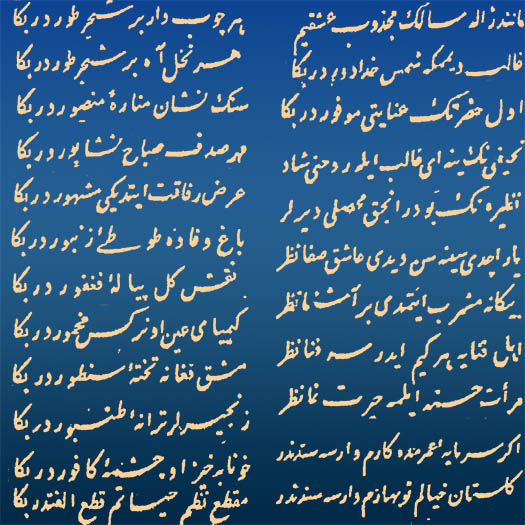 مانند ژاله سالك مجذوب عشقیم
غالب دیمكه شمس دربكا
اول حضرتك عنایتی موفور دربكا
نحیفی نك ینه ای غالب ایلر روحنی شاد
نظیره نك بو در انجق محصلی دیرلر
یار اچدی سینه سن دیدی عاشق صفا نظر
بیكانه مشرب ایتمدی بر آشنا نظر
اهل فنایه هر كیم ایدرسه فنا نظر
مرأت حسنه ایلمه حیرت نما نظر
اكر سرمایۀ عمرمده كارم وارسه سندندر
كلستان خیالم نوبهارم وارسه سندندر
هر چوب دار بر شجر طور دربكا
هر نخل آه بر شجر طور دربكا
سنك نشان منارۀ منصور دربكا
مهر صدف صباح نشاپور دربكا
عرض رفاقت ایتدیكی مشهور دربكا
باغ وفاده زنبور دربكا
نقش كل پیالۀ فغفور دربكا
كیمیای عین او نركس مخمور دربكا
مشق فغانه تختۀ سنطور دربكا
زنجیرلر ترانۀ طنبور دربكا
خونابه خیز او چشمۀ كافور دربكا
مقطع نظم حیاتم قطع الفتدر بكا